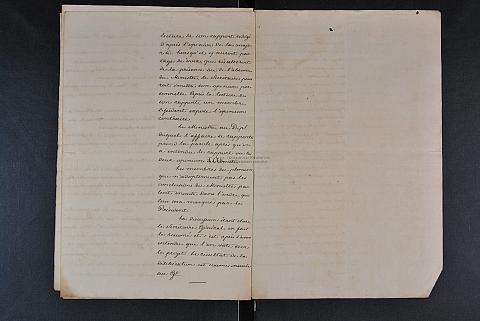 lecture de son rapport rédigé
d'après l'opinion de la majo-
rité lorsqu'il y auront par-
tage de voix, que résulteront
de la présence ou de l'absence
du Ministre, le Secrétaire pour
ront émettre son opinion per-
sonnelle. Après la lecture de
son rapport, un membre
dissident expose l'opinion
contraire.
Le Ministre au Dépt
duquel l'affaire se rapporte
prend la parole après qu'on
a entendu le rapport ou les
deux opinions
Les membres du
qui n'adopteraient pas les
conclusions du Ministre par
lent ensuite dans l'ordre qui
leur sera marqué par le
Président.
La discussion étant close
le Secrétaire Général en fait
le résumé et c'est après l'avoir
entendu que l'on vote sur
le projet. Le résultat de la
délibération est
au